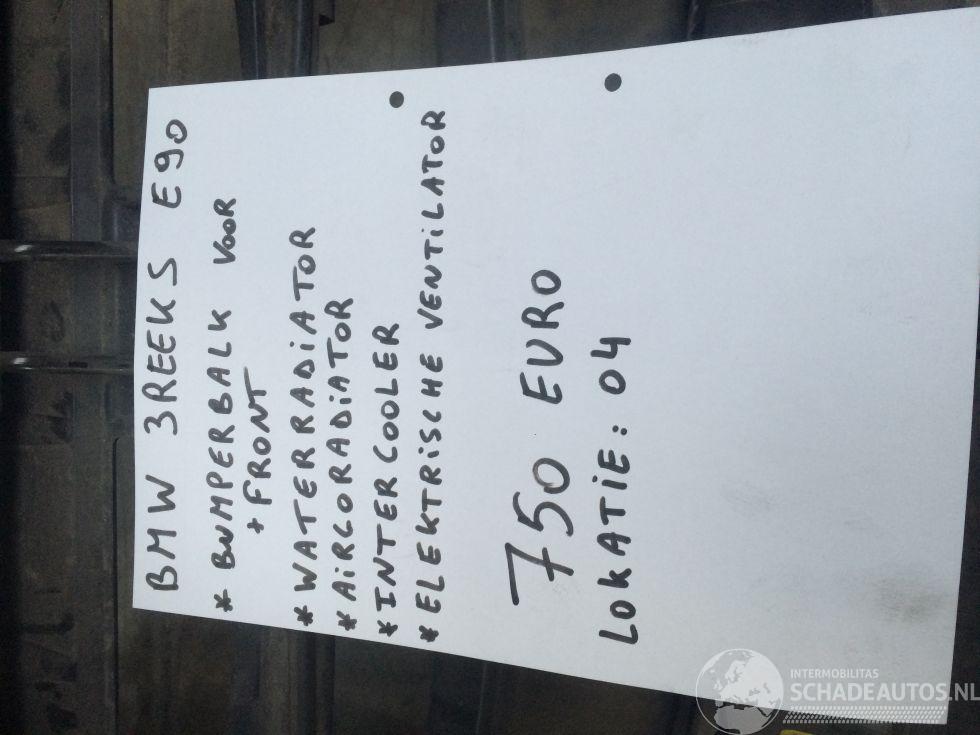 BMW 3REEKS E90
* BUMPERBALK VOOR
+ FRONT
* WATERRADIATOR
* AIRCORADIATOR
* INTERCOOLER
* ELEKTRISCHE VENTILATOR
750 EURO
LOKATIE: 04
INTERMOBILITAS
SCHADEAUTOS.NL